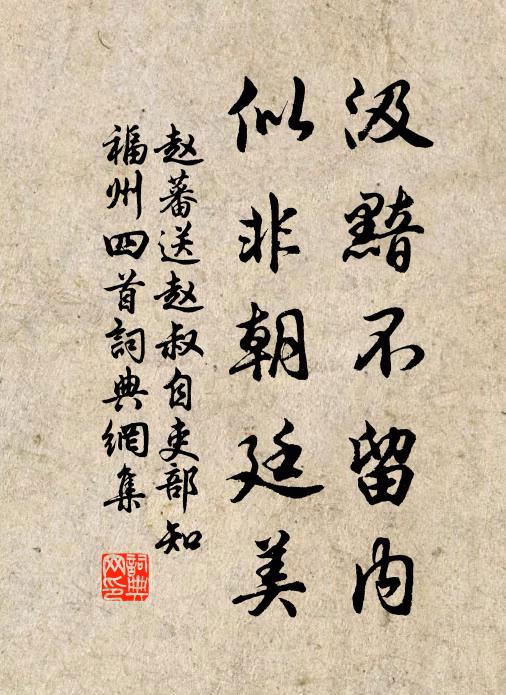 汲黯不留内
似非朝廷美
赵蕃送赵叔自吏部知
福州四首詞典網集
詞典網印